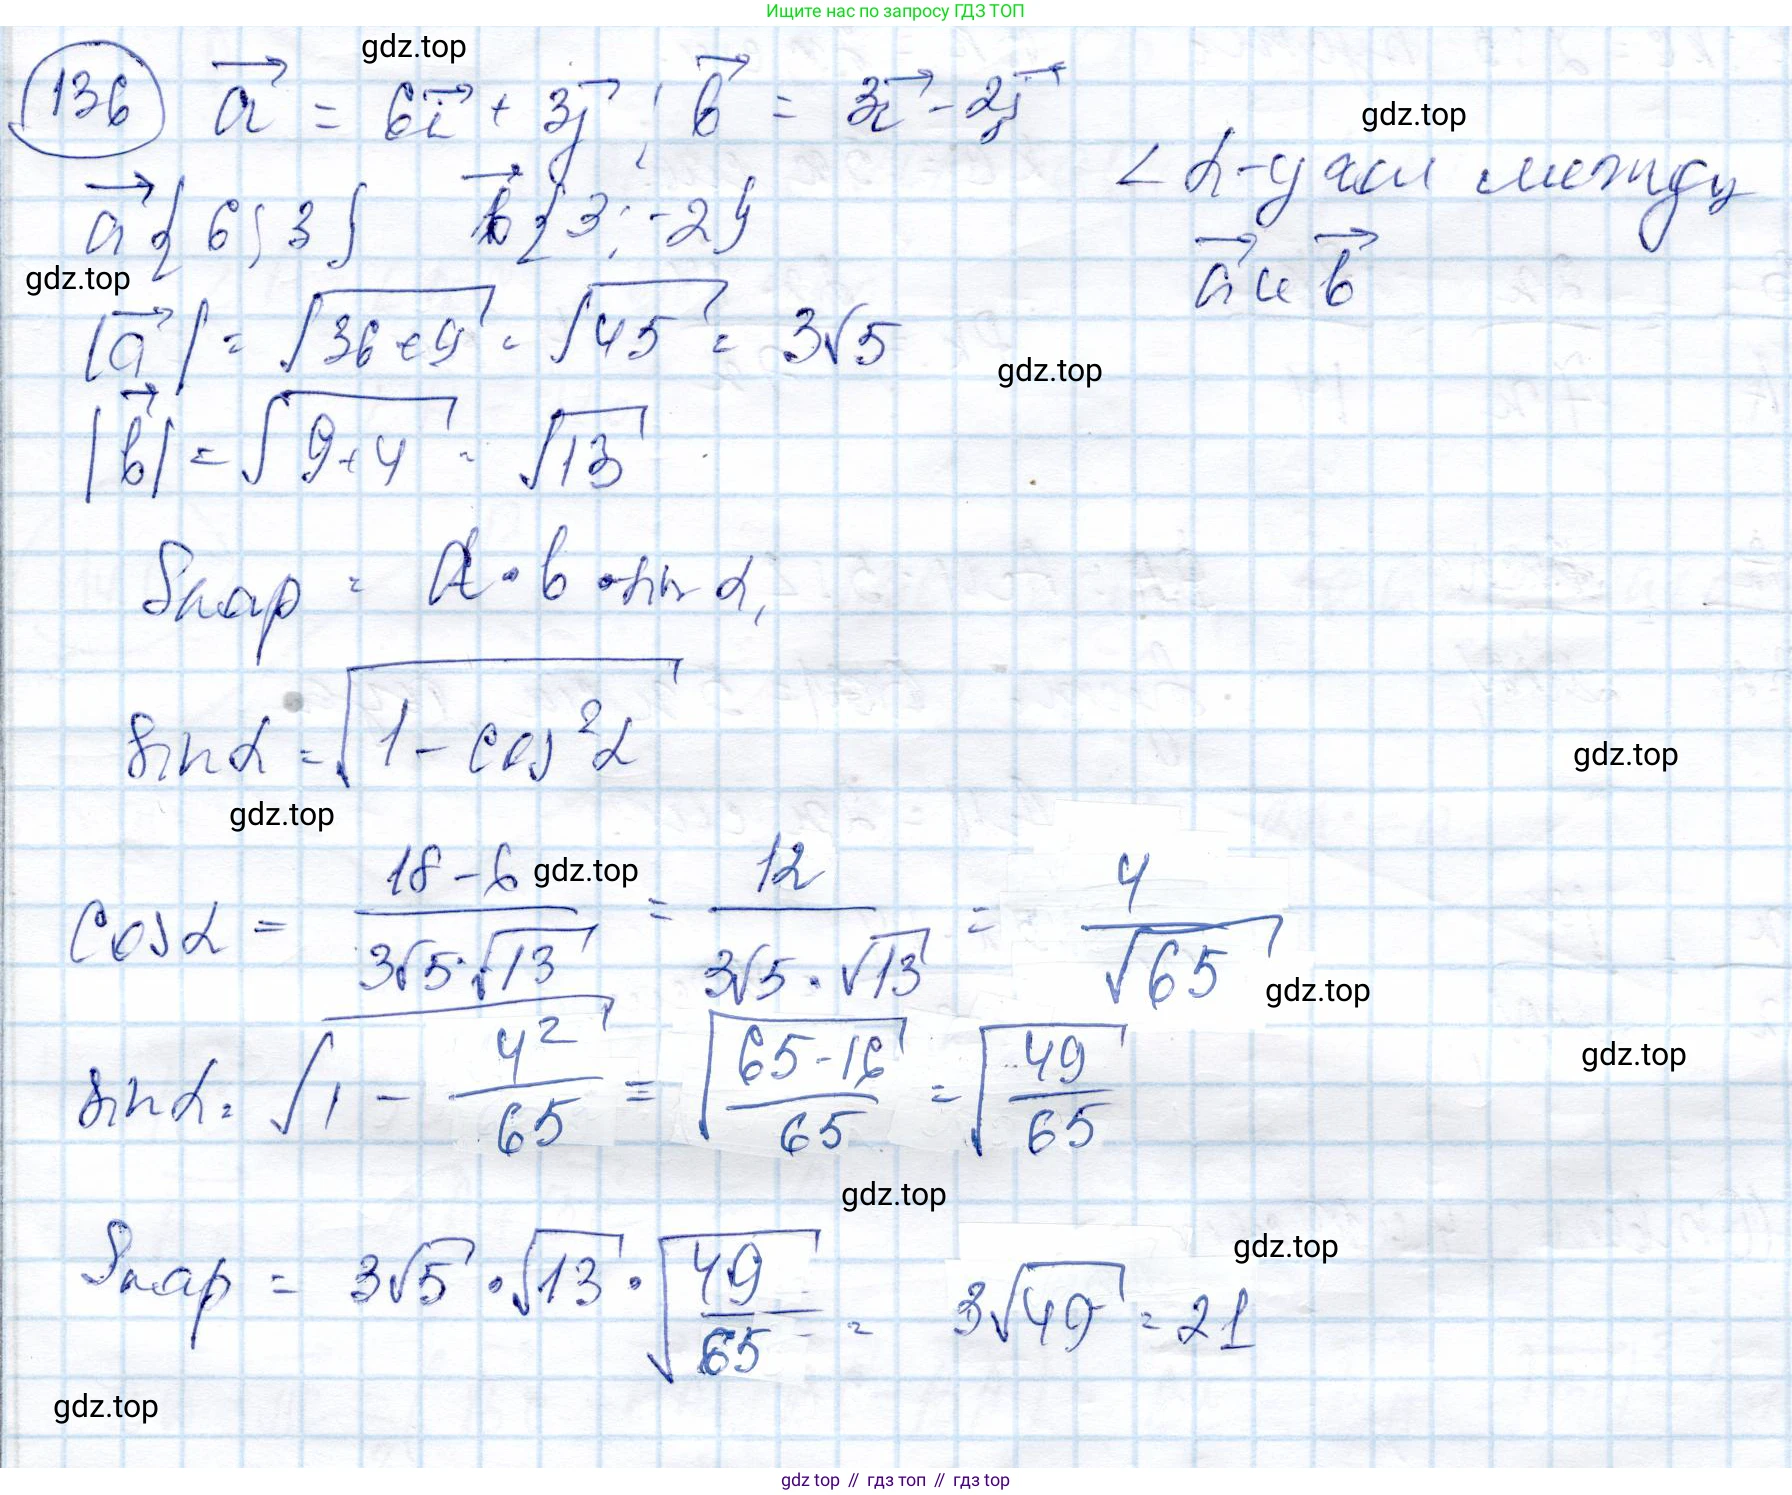 Ищите нас по запросу ГДЗ ТОП
gdz.top
136 a⃗ = 6i⃗ + 3j⃗ ; b⃗ = 3i⃗ - 2j⃗
gdz.top
∠ α - угол между
a⃗ и b⃗
a⃗ {6; 3} b⃗ {3; -2}
gdz.top
|a⃗| = √(36+9) = √45 = 3√5
gdz.top
|b⃗| = √(9+4) = √13
Sпар = a · b · sin α,
sin α = √(1 - cos²α)
gdz.top
gdz.top
cos α = (18-6)/(3√5·√13) = 12/(3√5·√13) = 4/√65
gdz.top
gdz.top
sin α = √(1 - 4²/65) = √((65-16)/65) = √(49/65)
gdz.top
gdz.top
gdz.top
Sпар = 3√5 · √13 · √(49/65) = 3√49 = 21
gdz.top
gdz top // гдз топ // гдз top